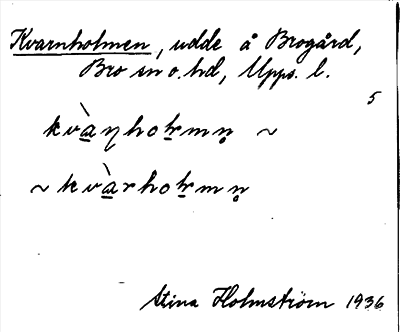 Kvarnholmen, udde å Brogård,
Bro sn o. hd, Upps. l.
5
kvà̲ŋhoɫ̲mn̥ ~
~ kvà̲rhoɫ̲mn̥
Stina Holmström 1936